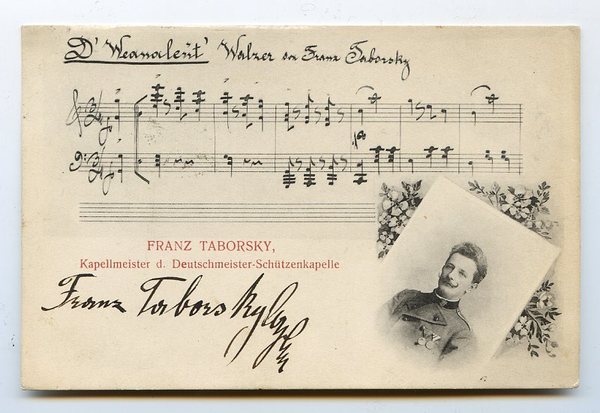 D' Weanaleut' Walzer von Franz Taborsky
FRANZ TABORSKY,
Kapellmeister d. Deutschmeister-Schützenkapelle
Franz Taborsky